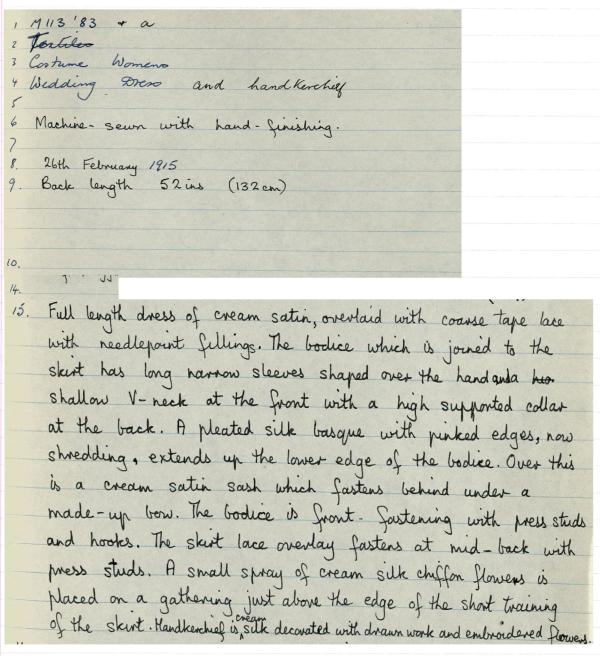 1 M113 '83 + a
2 Textiles
3 Costume Womens
4 Wedding Dress and handkerchief
5
6 Machine-sewn with hand-finishing.
7
8. 26th February 1915
9. Back length 52 ins (132cm)
10.
14.
15. Full length dress of cream satin, overlaid with coarse tape lace
with needlepoint fillings. The bodice which is joined to the
skirt has long narrow sleeves shaped over the hand and a
shallow V-neck at the front with a high supported collar
at the back. A pleated silk basque with pinked edges, now
shredding, extends up the lower edge of the bodice. Over this
is a cream satin sash which fastens behind under a
made-up bow. The bodice is front-fastening with press studs
and hooks. The skirt lace overlay fastens at mid-back with
press studs. A small spray of cream silk chiffon flowers is
placed on a gathering just above the edge of the short training
of the skirt. Handkerchief is cream silk decorated with drawn work and embroidered flowers.